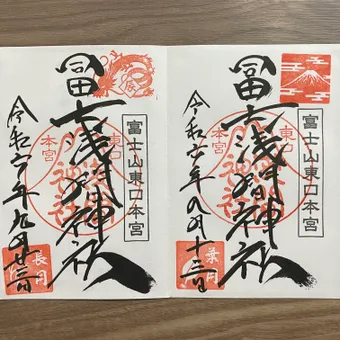 富士山東口本宮
東口
冨士浅間神社
本宮
令和六年八月十三日
葉月
富士山東口本宮
東口
冨士浅間神社
本宮
令和六年九月
長月